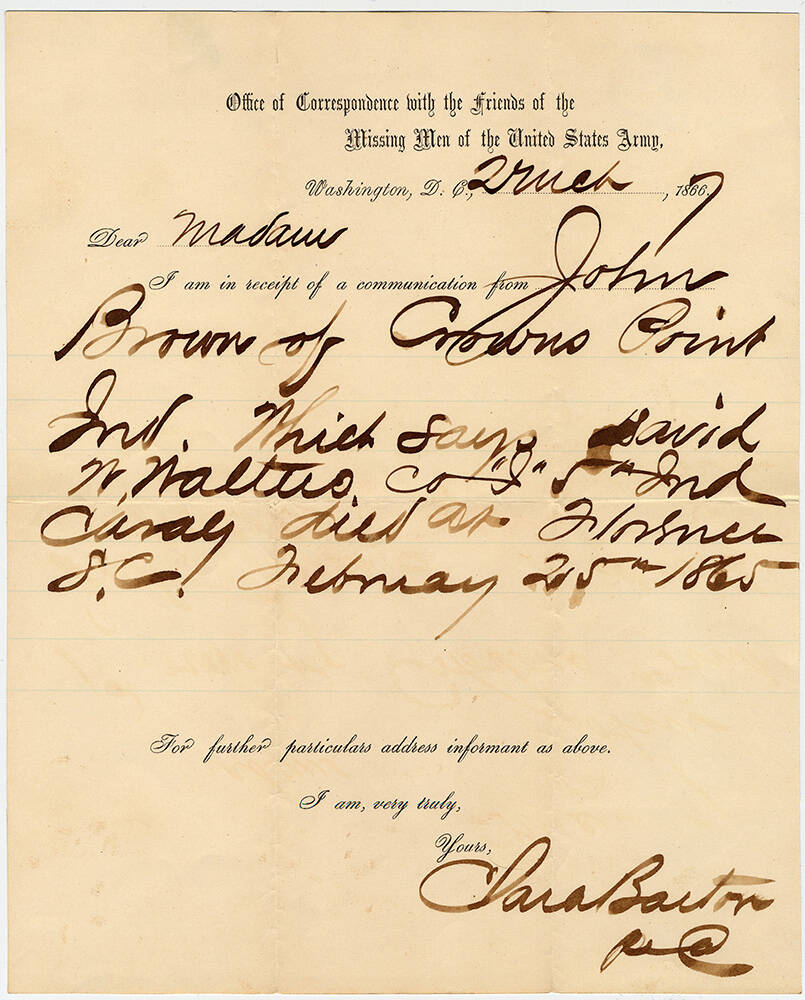 Office of Correspondence with the Friends of the
Missing Men of the United States Army,
Washington, D. C., 2 Mch, 1867
Dear Madam
I am in receipt of a communication from John
Brown of Crowns Point
Ind. Which says David
W. Walters, Co "I" 5" Ind
Cavaly died at Florence
S.C. February 25" 1865
For further particulars address informant as above.
I am, very truly,
Yours,
Clara Barton